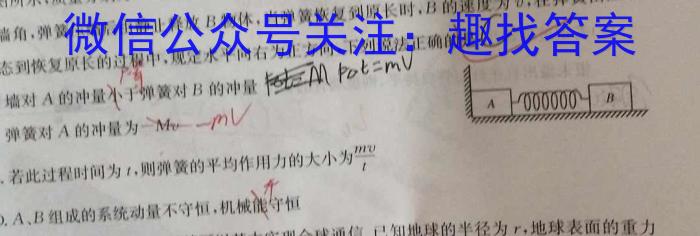 墙角,弹簧
放B物体,当弹簧恢复到原长时,B的速度为
微信公众号关注：趣找答案
态到恢复原长的过程中,规定水平向右为正方向,下列说法正确的
墙对A的冲量小于弹簧对B的冲量 Pot=mv
弹簧对A的冲量为-Mv -mV
A B
.若此过程时间为t,则弹簧的平均作用力的大小为mv/t
D.A、B组成的系统动量不守恒,机械能守恒
全球通信,已知地球的半径为r,地球表面的重力